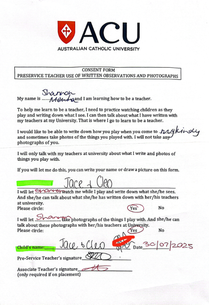 ACU
AUSTRALIAN CATHOLIC UNIVERSITY
CONSENT FORM
PRESERVICE TEACHER USE OF WRITTEN OBSERVATIONS AND PHOTOGRAPHS
My name is Shannon and I am learning how to be a teacher.
To help me learn to be a teacher, I need to practice watching children as they
play and writing down what I see. I can then talk about what I have written with
my teachers at my University. That is where I go to learn to be a teacher.
I would like to be able to write down how you play when you come to
and sometimes take photos of the things you played with. I will not take any
photographs of you.
I will only talk with my teachers at university about what I write and photos of
things you play with.
If you will let me do this, you can write your name or draw a picture on this form.
Jace & Cleo
I will let while I play and write down what she/he sees.
And she/he can talk about what she/he has written down with her/his teachers
at university.
Please circle Yes No
I will let photographs of the things I play with. And she/he can
talk about these photographs with her/his teachers at University.
Please circle Yes No
Child's Jace & Cleo Date 30/07/2025
Pre-Service Teacher's signature
Associate Teacher's signature
(only required if on placement)